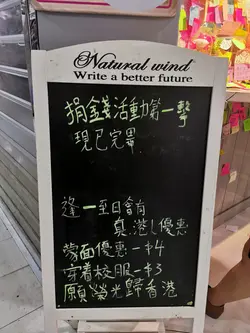 Natural wind
Write a better future
捐金錢活動第一擊
現已完畢
逢一至日會有
真。港L優惠
蒙面優惠 -$4
穿着校服 -$3
願榮光歸香港